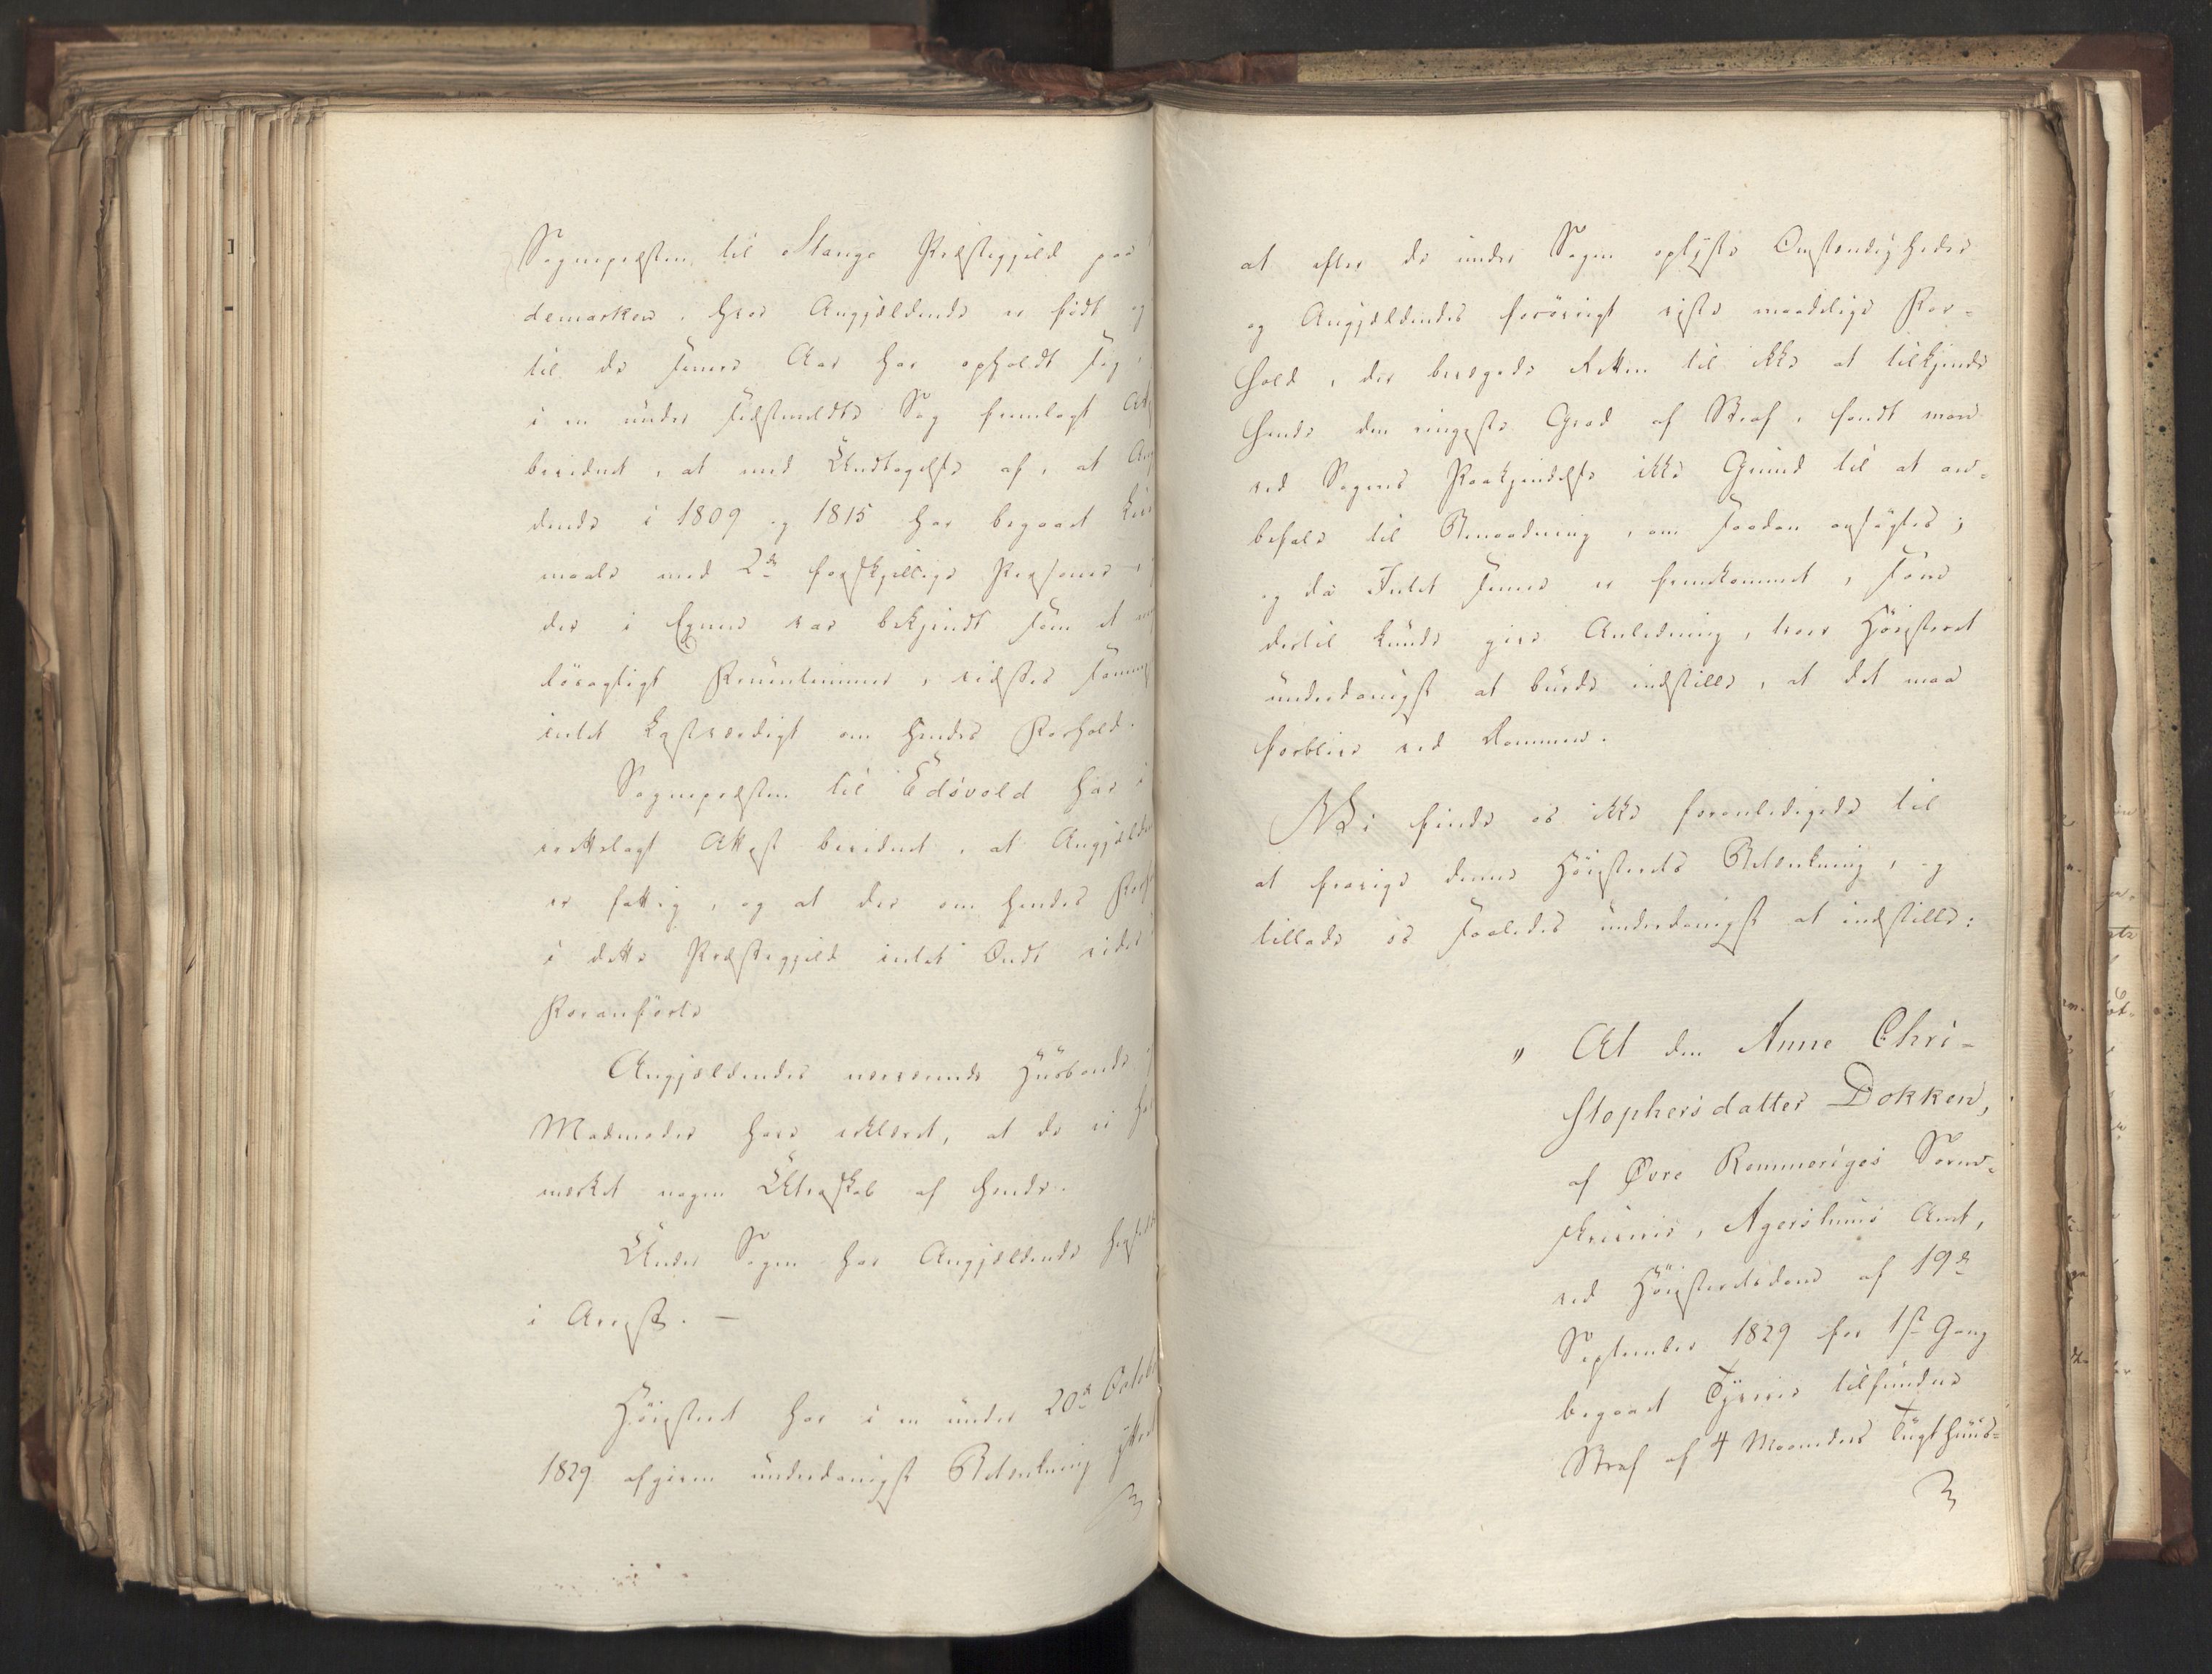 Sognepræsten til Stange Præstegjeld paa
demarken, hvor Angjældende er født og
til de senere Aar har opholdt sig,
i en under sidstmeldte Sag fremlagt Att
bevidnet, at med Undtagelse af, at Ang
dende i 1809 og 1815 har begaaet Leier
maale med 2de forskjellige Personer,
der i Egnen var bekjendt som et
løsagtigt Fruentimmer, vidstes
intet lastværdigt om hendes Forhold.
Sognepræsten til Eidsvold har i
rettelagt Attest bevidnet, at Angjælden
er fattig, og at der om hendes Forh
i dette Præstegjeld intet Ondt vides
Foranførte
Angjældendes nærværende Huusbonde
Madmoder have erklæret, at de ei ha
mærket nogen Utroskab af hende.
Under Sagen har Angjældende hensiddet
i Arrest. —
Høiesteret har i en under 20de Octobe
1829 afgiven underdanigst Betænkning yttret
at efter de under Sagen oplyste Omstændigheder
og Angjældendes forøvrigt viste maadelige For-
hold, der bevægede Retten til ikke at tilkjende
hende den ringeste Grad af Straf, fandt man
ved Sagens Paakjendelse ikke Grund til at an-
befale til Benaadning, om saadan ansøgtes;
og da Intet senere er fremkommet, som
dertil kunde give Anledning, troer Høiesteret
underdanigst at burde indstille, at det maa
forblive ved Dommen.
Vi finde os ikke foranledigede til
at fravige denne Høiesterets Betænkning, og
tillade os saaledes underdanigst at indstille:
" At den Anne Chri-
stophersdatter Dokken,
af Øvre Rommeriges Soren-
skriverie, Agershuus Amt,
ved Høiesteretsdom af 19de
September 1829 for 1ste Gang
begaaet Tyverie tilfundne
Straf af 4 Maaneders Tugthuus-